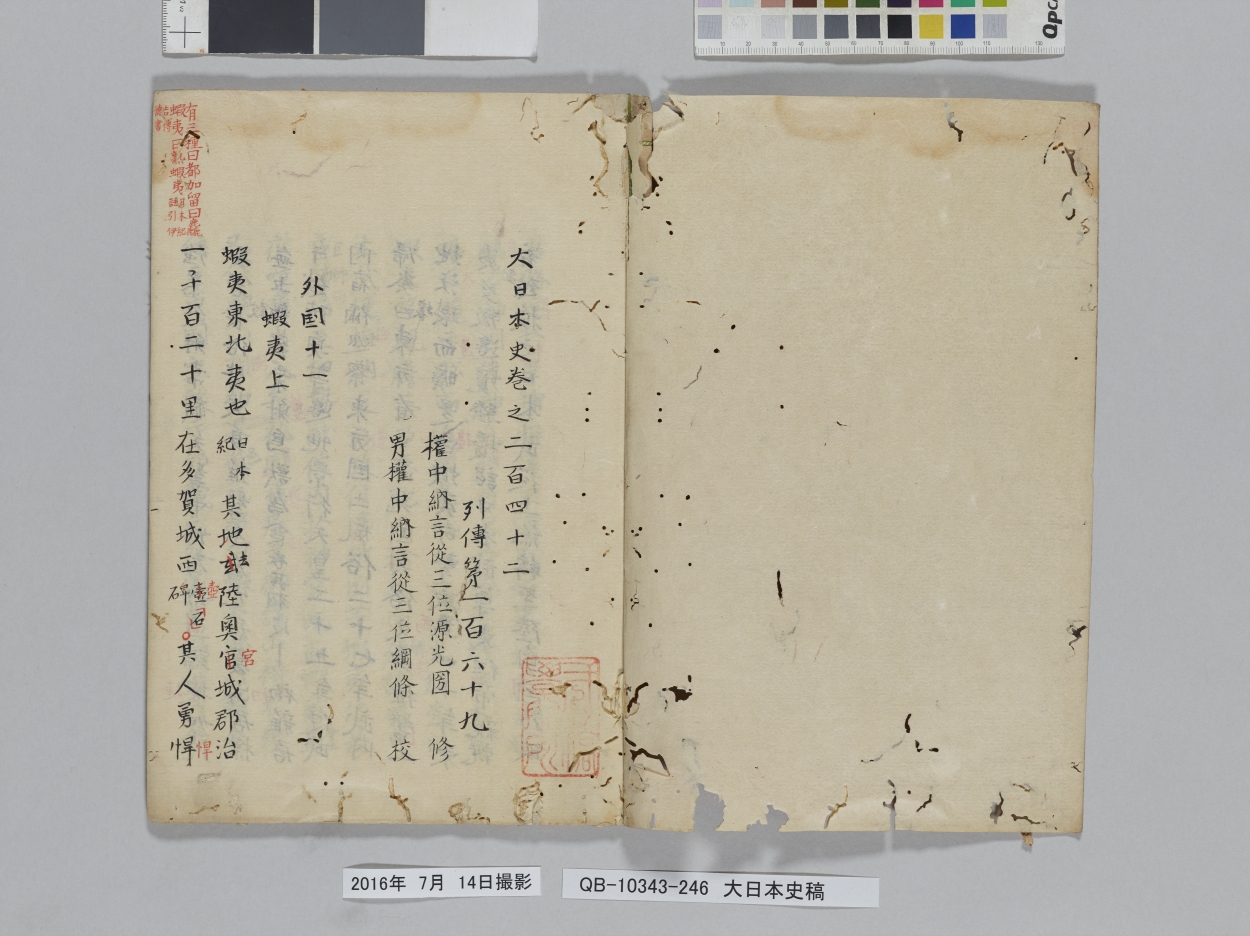 大日本史巻之二百四十二
列傳第一百六十九
權中納言從三位源光圀 修
男權中納言從三位綱條 校
外国十一
蝦夷上
蝦夷東北夷也日本紀其地去陸奥宮城郡治
一千百二十里在多賀城西壺石碑其人勇悍
宮
悍
壺
有三種曰都加留曰麁
蝦夷曰熟蝦夷日本紀註引伊
吉傳
2016年 7月 14日撮影
QB-10343-246 大日本史稿